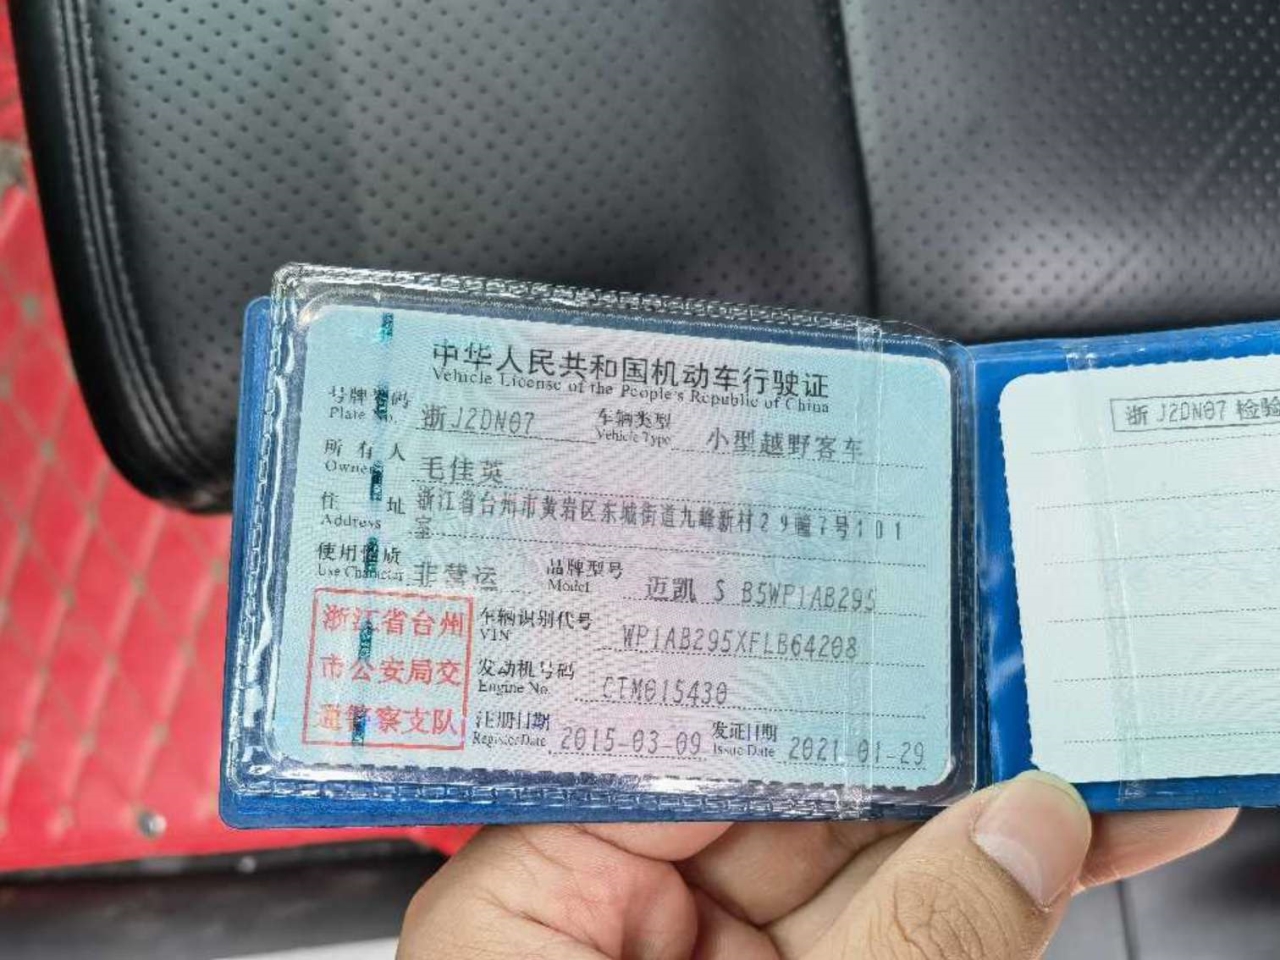 中华人民共和国机动车行驶证
Vehicle License of the People's Republic of China
号牌号码 浙J2DN07 车辆类型 小型越野客车
Plate No. Vehicle Type
所有人 毛佳英
Owner
住址 浙江省台州市黄岩区东城街道九峰新村29幢7号101
Address 室
使用性质 非营运 品牌型号 迈凯 S B5WP1AB295
Use Character Model
浙江省台州
市公安局交
通警察支队
车辆识别代号 WP1AB295XFLB64208
VIN
发动机号码 CTM015430
Engine No.
注册日期 2015-03-09 发证日期 2021-01-29
Register Date Issue Date
浙J2DN07 检验